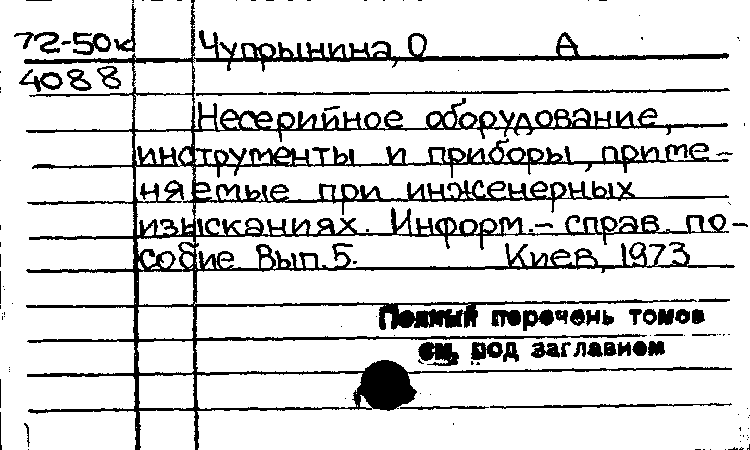 72-50к Чупрынина, О А
4088
Несерийное оборудование,
инструменты и приборы, приме-
няемые при инженерных
изысканиях. Информ.- справ. по-
собие Вып. 5. Киев, 1973
Полный перечень томов
см. под заглавием